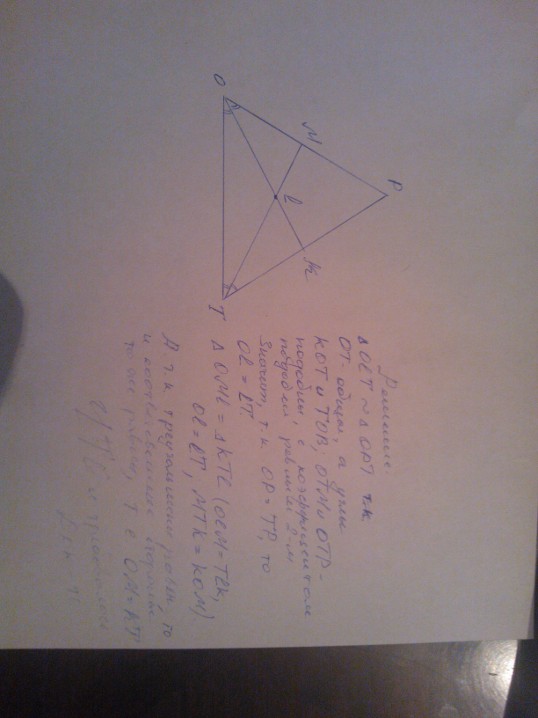 O
М
P
l
К
T
Решение.
Δ OLT ~ Δ OPT т.к.
OT - общая, а углы
KOT и TOB, OTM и OTP -
подобны, с коэффициентом
подобия равным 2-м
Значит, т.к. OP = TP, то
Ol = lT.
Δ OMl = Δ KTl (OlM = TlK,
Ol = lT, MTK = KOM)
А т.к. треугольники равны, то
и соответственные
то же равны, т.е OM = KT
и